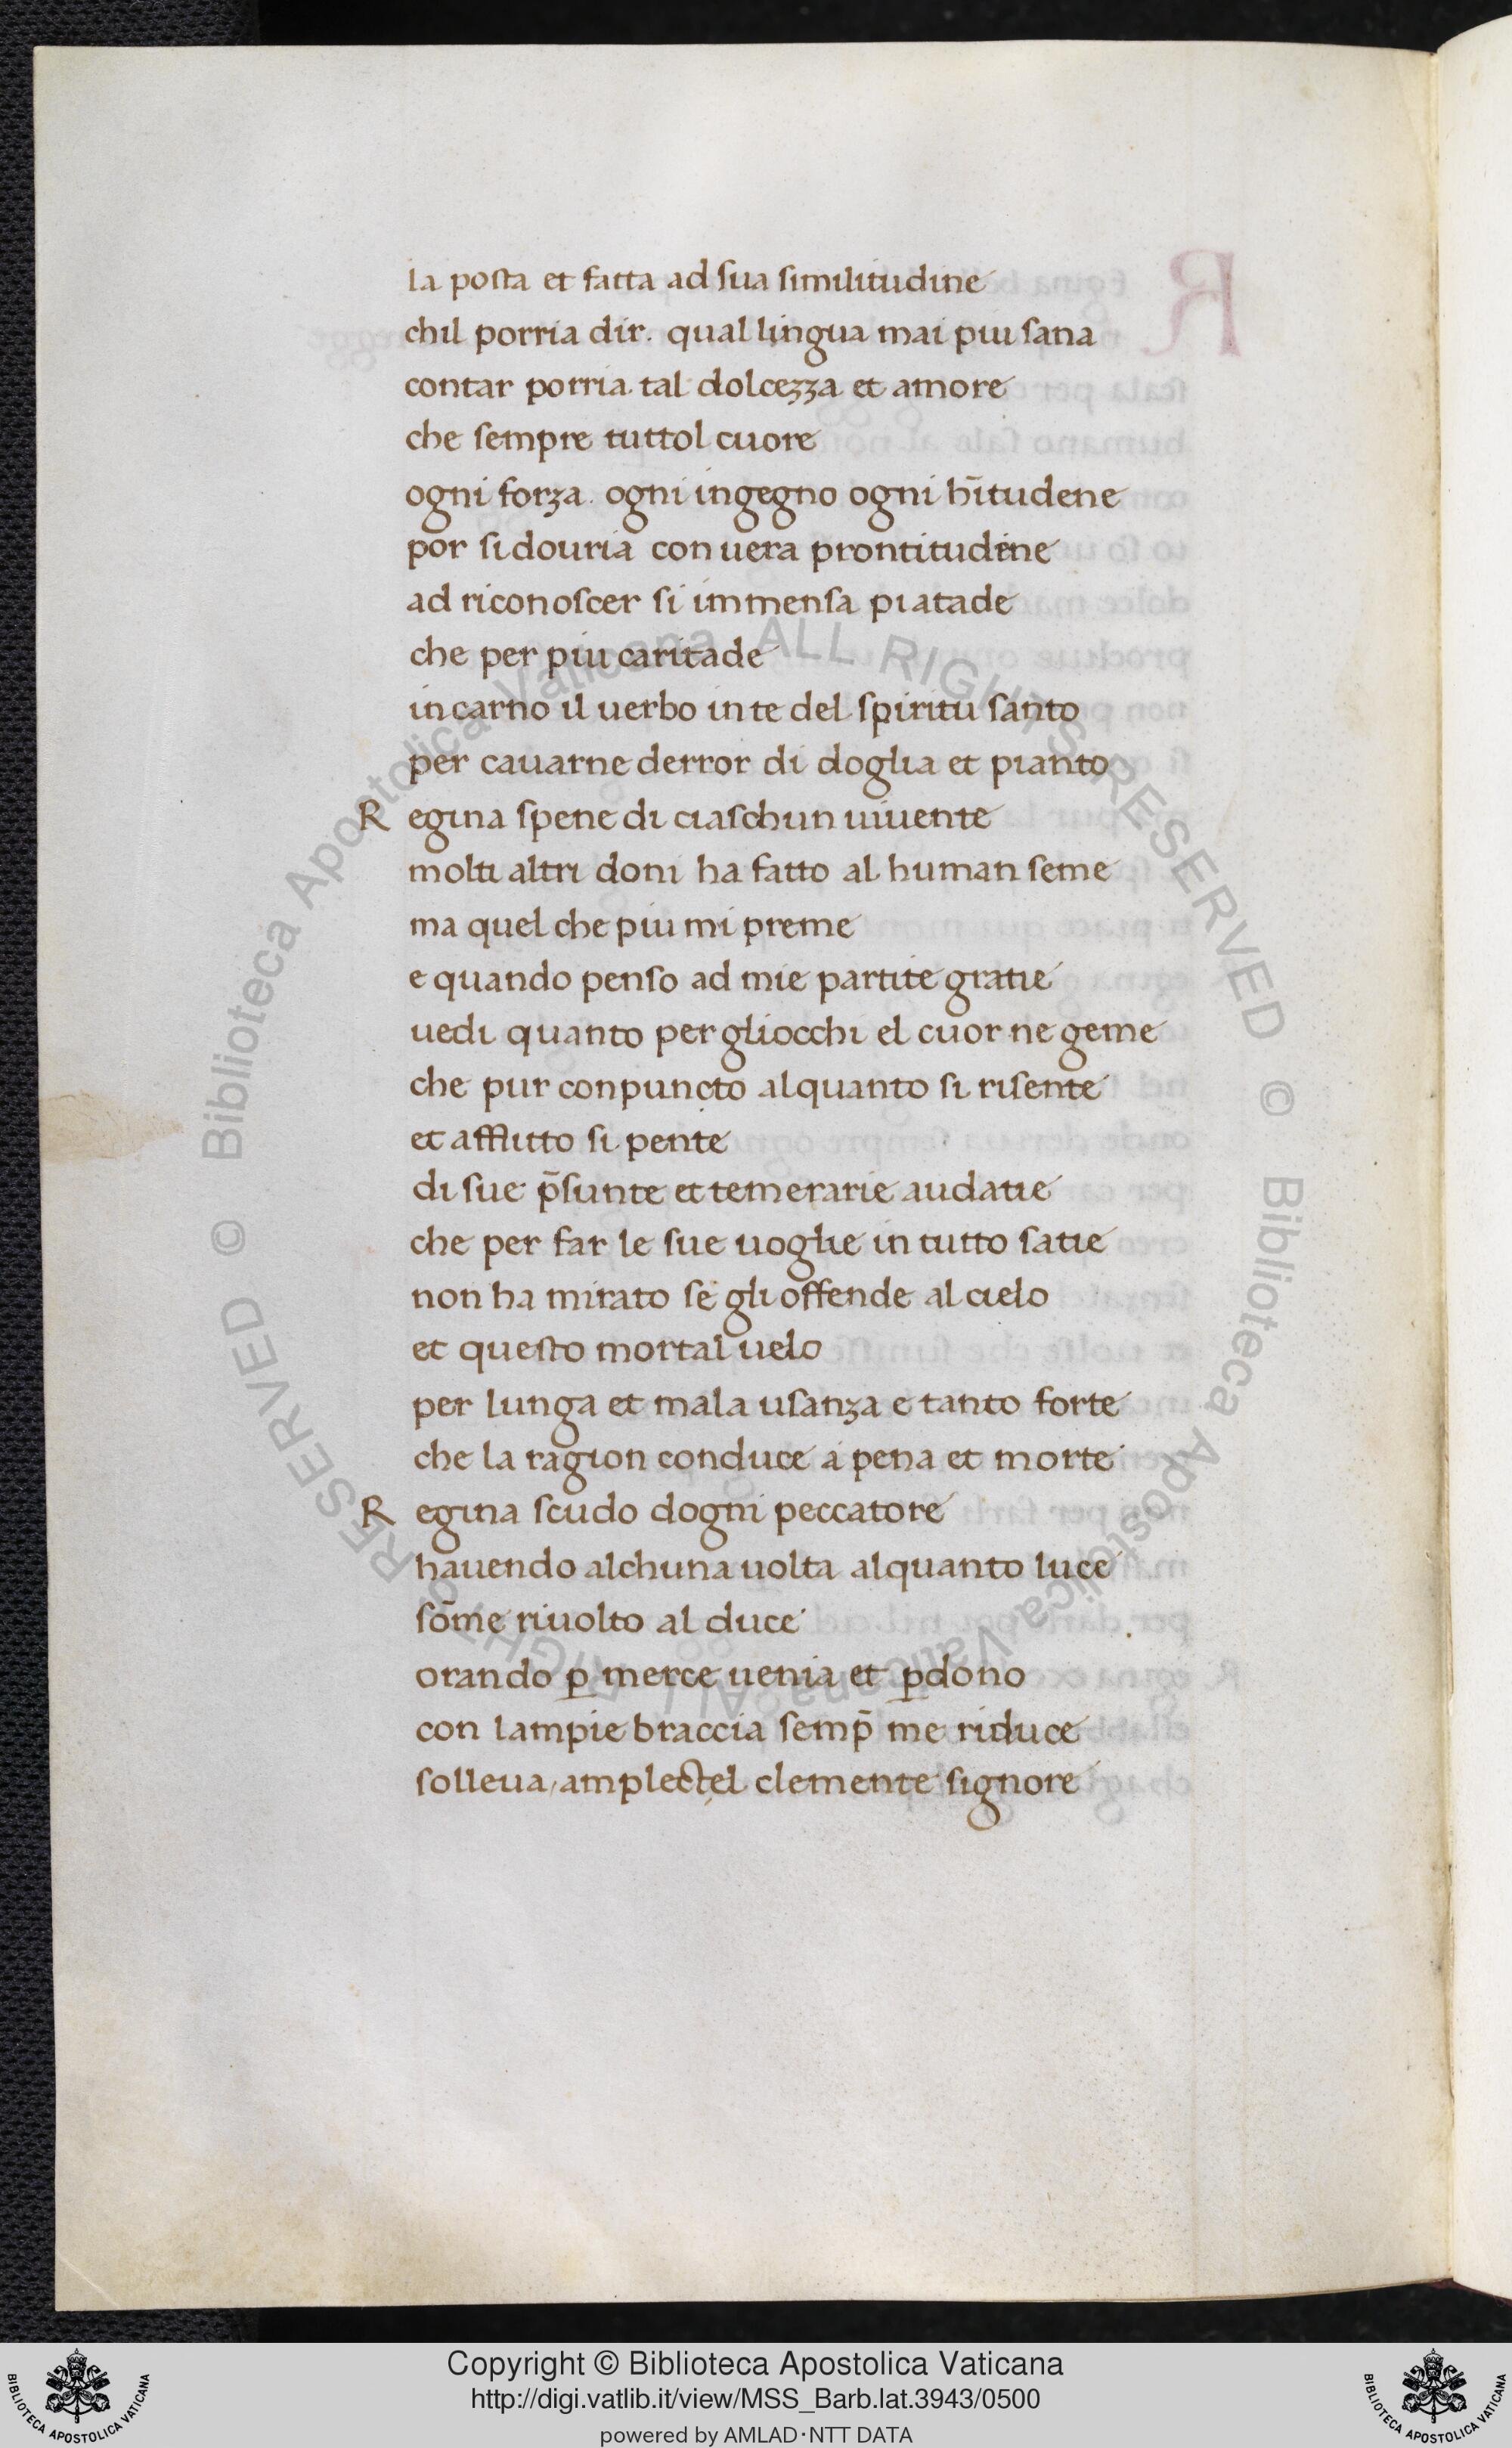 la posta et fatta ad sua similitudine
chil porria dir. qual lingua mai piu sana
contar porria tal dolcezza et amore
che sempre tuttol cuore
ogni forza. ogni ingegno ogni hītudene
por si douria con uera prontitudine
ad riconoscer si immensa piatade
che per piu caritade
incarno il uerbo in te del spiritu santo
per cauarne derror di doglia et pianto
Regina spene di ciaschun uiuente
molti altri doni ha fatto al human seme
ma quel che piu mi preme
e quando penso ad mie partite gratie
uedi quanto per gliocchi el cuor ne geme
che pur conpuncto alquanto si risente
et afflitto si pente
di sue p̄sunte et temerarie audatie
che per far le sue uoglie in tutto satie
non ha mirato se gli offende al cielo
et questo mortal uelo
per lunga et mala usanza e tanto forte
che la ragion conduce a pena et morte
Regina scudo dogni peccatore
hauendo alchuna uolta alquanto luce
sōme riuolto al duce
orando ꝑ merce uenia et ꝑdono
con lampie braccia semp̄ me riduce
solleua, amplectel clemente signore
© Biblioteca Apostolica Vaticana ALL RIGHTS RESERVED © Biblioteca Apostolica Vaticana ALL RIGHTS RESERVED
BIBLIOTECA APOSTOLICA VATICANA
Copyright © Biblioteca Apostolica Vaticana
http://digi.vatlib.it/view/MSS_Barb.lat.3943/0500
powered by AMLAD·NTT DATA
BIBLIOTECA APOSTOLICA VATICANA